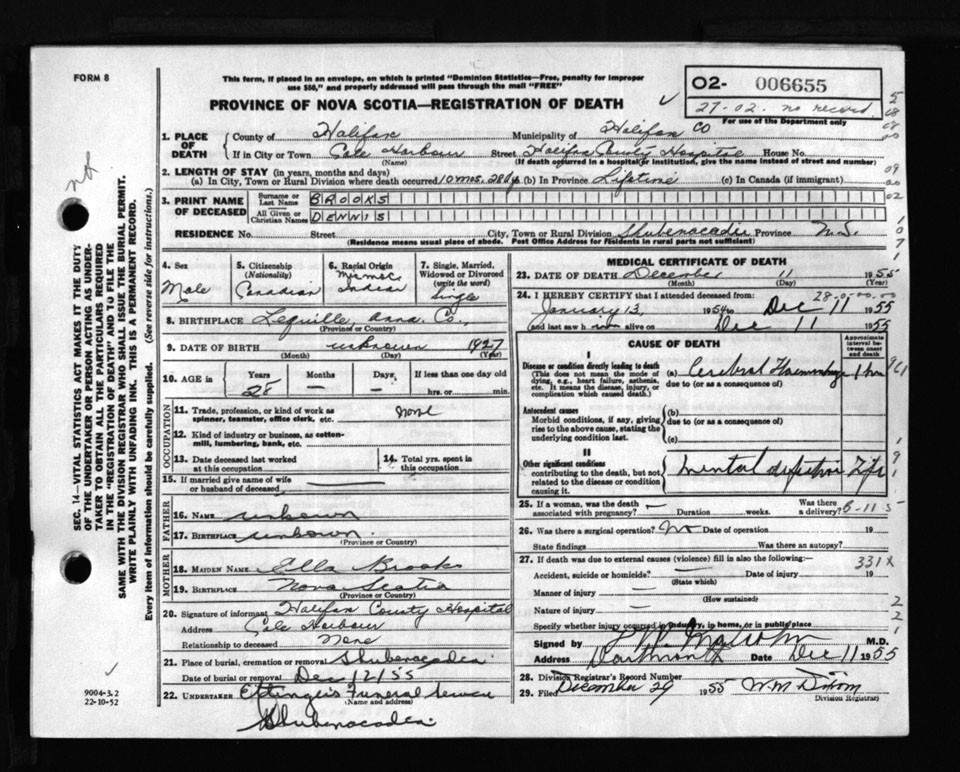 FORM 8
This form, if placed in an envelope, on which is printed "Dominion Statistics—Free, penalty for improper
use $50," and properly addressed will pass through the mail "FREE"
PROVINCE OF NOVA SCOTIA—REGISTRATION OF DEATH
02- 006655
27-02. no record.
For use of the Department only
1. PLACE OF DEATH
County of Halifax Municipality of Halifax Co
If in City or Town Cole Harbour Street Halifax County Hospital House No.
(Name) (If death occurred in a hospital or institution, give the name instead of street and number)
2. LENGTH OF STAY (in years, months and days)
(a) In City, Town or Rural Division where death occurred 10 mos. 28 dys (b) In Province Lifetime (c) In Canada (if immigrant)
3. PRINT NAME OF DECEASED
Surname or Last Name BROOKS
All Given or Christian Names DENNIS
RESIDENCE No. Street City, Town or Rural Division Shubenacadie Province N.S.
(Residence means usual place of abode. Post Office Address for residents in rural parts not sufficient)
4. Sex
Male
5. Citizenship
(Nationality)
Canadian
6. Racial Origin
Micmac
Indian
7. Single, Married,
Widowed or Divorced
(write the word)
Single
8. BIRTHPLACE Lequille, Anna. Co.,
(Province or Country)
9. DATE OF BIRTH unknown 1927
(Month) (Day) (Year)
10. AGE in Years Months Days If less than one day old
28 — — hrs. or min.
OCCUPATION
11. Trade, profession, or kind of work as
spinner, teamster, office clerk, etc. none
12. Kind of industry or business, as cotton-
mill, lumbering, bank, etc.
13. Date deceased last worked
at this occupation
14. Total yrs. spent in
this occupation
15. If married give name of wife
or husband of deceased
FATHER
16. NAME unknown
17. BIRTHPLACE unknown.
(Province or Country)
MOTHER
18. MAIDEN NAME Ella Brooks
19. BIRTHPLACE Nova Scotia
(Province or Country)
20. Signature of informant Halifax County Hospital
Address Cole Harbour
Relationship to deceased None
21. Place of burial, cremation or removal Shubenacadie
Date of burial or removal Dec 12/55
22. UNDERTAKER Ettinger's Funeral Service
(Name and address)
Shubenacadie
MEDICAL CERTIFICATE OF DEATH
23. DATE OF DEATH December 11 1955
(Month) (Day)
24. I HEREBY CERTIFY that I attended deceased from:
January 13, 1954 to Dec 11 1955
and last saw him alive on Dec 11 1955
CAUSE OF DEATH
Approximate
interval between
onset and death
I
Disease or condition directly leading to death
(This does not mean the mode of
dying, e.g., heart failure, asthenia,
etc. It means the disease, injury, or
complication which caused death.)
(a) Cerebral Haemorrhage 1 hr
due to (or as a consequence of)
Antecedent causes
Morbid conditions, if any, giving
rise to the above cause, stating the
underlying condition last.
(b)
due to (or as a consequence of)
(c)
II
Other significant conditions
contributing to the death, but not
related to the disease or condition
causing it.
Mental defective Life
25. If a woman, was the death
associated with pregnancy? — Duration weeks. Was there a delivery?
26. Was there a surgical operation? No Date of operation 19
State findings Was there an autopsy?
27. If death was due to external causes (violence) fill in also the following:
331X
Accident, suicide or homicide? — Date of injury 19
(State which)
Manner of injury —
(How sustained)
Nature of injury —
Specify whether injury occurred in industry, in home, or in public place
Signed by M.D.
Address Dartmouth Date Dec 11 1955
28. Division Registrar's Record Number
29. Filed December 29 1955 W M
Division Registrar)
SEC. 14—VITAL STATISTICS ACT MAKES IT THE DUTY
OF THE UNDERTAKER OR PERSON ACTING AS UNDER-
TAKER TO OBTAIN ALL THE PARTICULARS REQUIRED
IN THE "REGISTRATION OF DEATH" AND TO FILE THE
SAME WITH THE DIVISION REGISTRAR WHO SHALL ISSUE THE BURIAL PERMIT.
WRITE PLAINLY WITH UNFADING INK. THIS IS A PERMANENT RECORD.
Every item of information should be carefully supplied. (See reverse side for instructions.)
9004-3.2
22-10-52